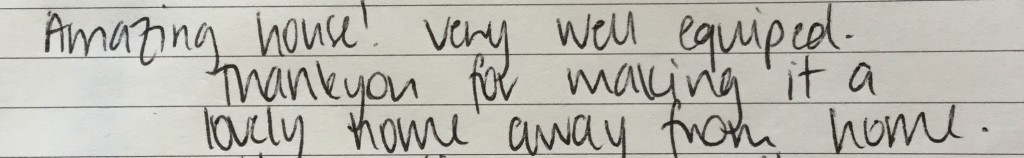 Amazing house! very well equiped.
Thankyou for making it a
lovely home away from home.